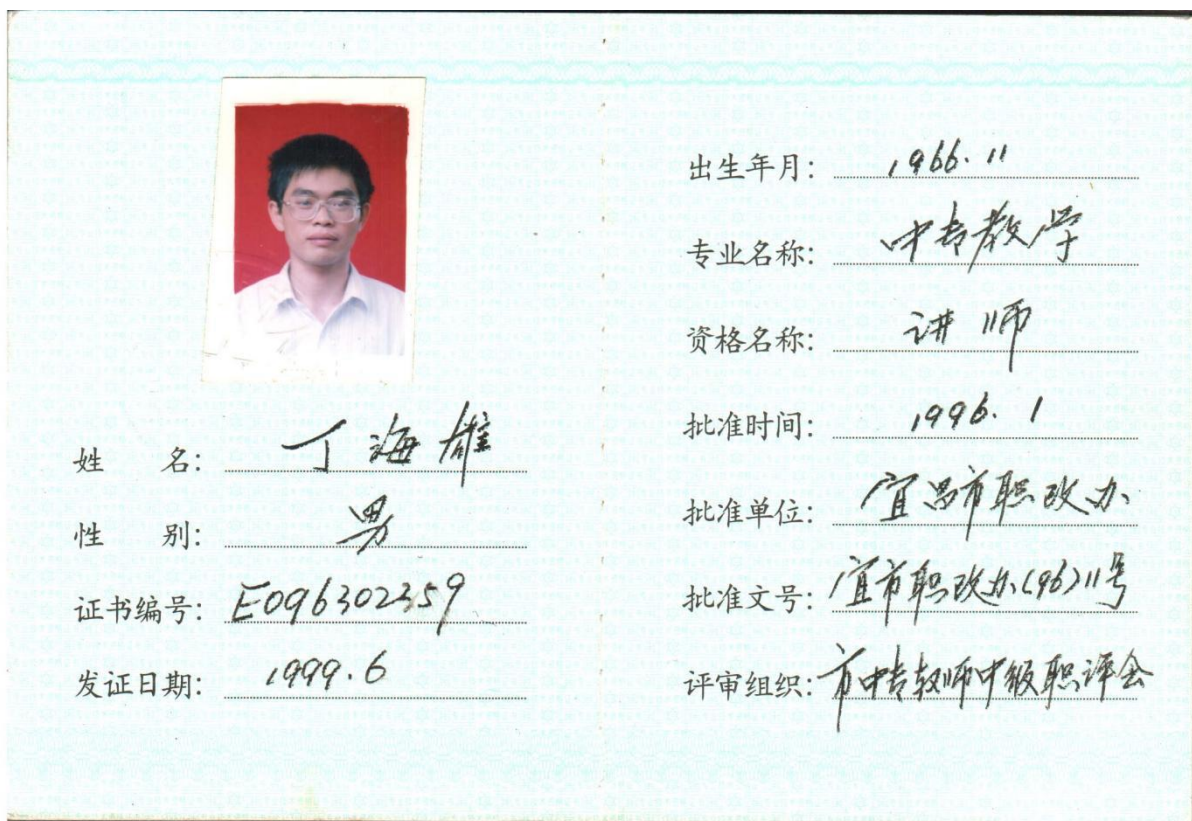 姓 名: 丁海雄
性 别: 男
证书编号: E096302359
发证日期: 1999.6
出生年月: 1966.11
专业名称: 中专教学
资格名称: 讲师
批准时间: 1996.1
批准单位: 宜昌市职改办
批准文号: 宜市职改办(96)11号
评审组织: 市中专教师中级职评会